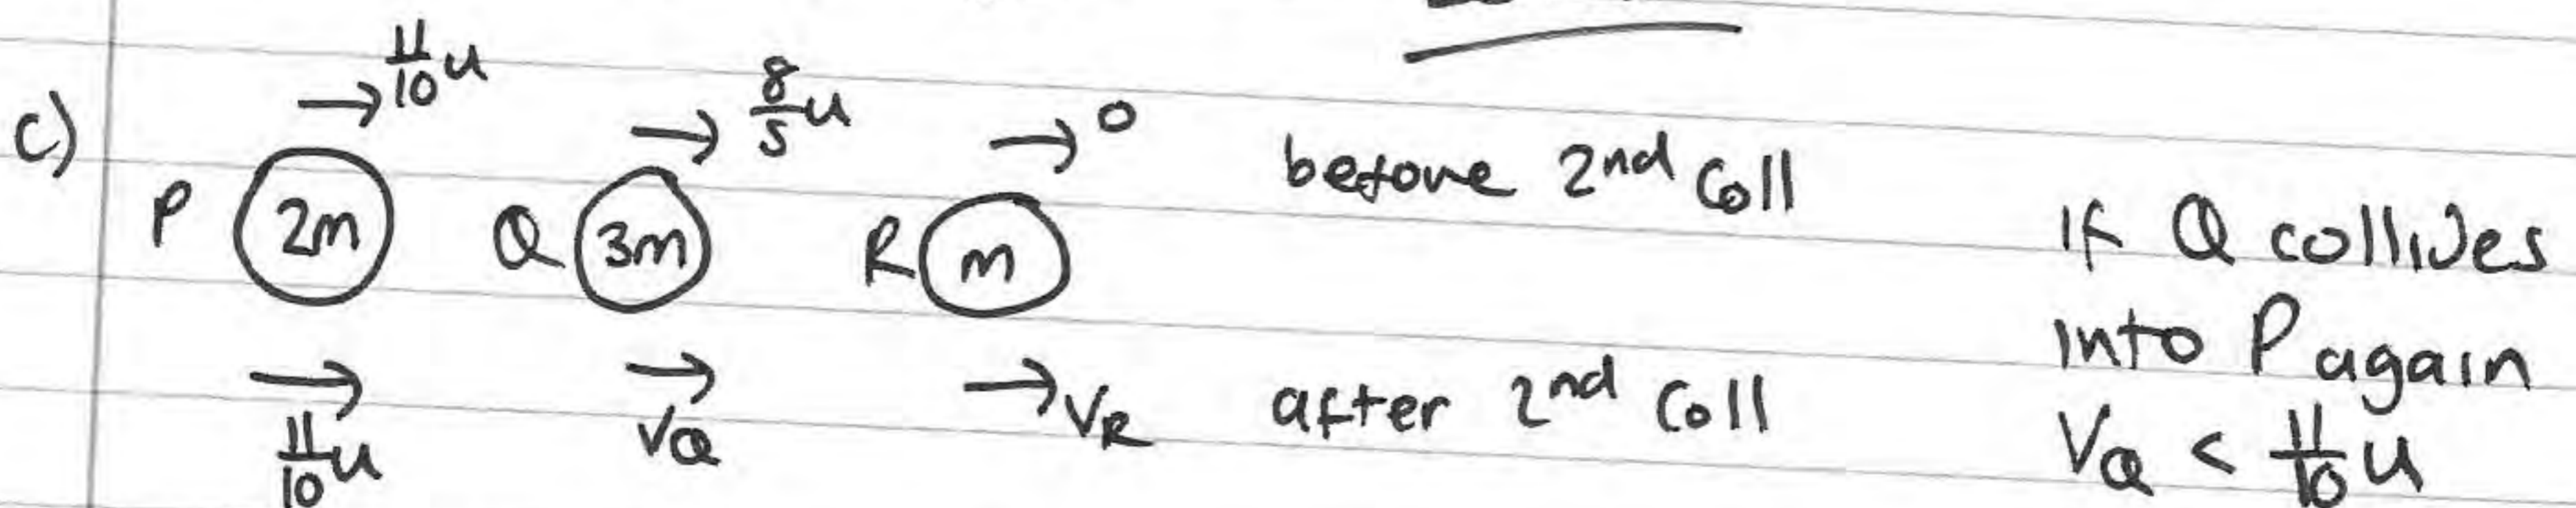 c) → 11/10 u → 8/5 u → 0 before 2nd Coll
P 2m Q 3m R m
→ 11/10 u → VQ → VR after 2nd Coll
If Q collides
into P again
VQ < 11/10 u